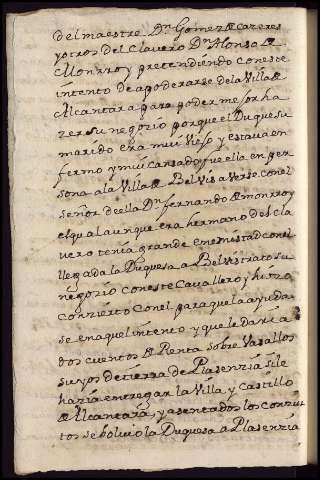 del maestre Dn Gomez de Cazeres
y otros del Clavero Dn Alonso de
Monrroy pretendiendo con este
intento de apoderarse de la Villa de
Alcantara para poder mejor ha
zer su negozio porque el Duque su
marido era mui viejo y estava en
fermo y mui cansado, fue ella en per
sona a la Villa de Belvis a verse con el
señor de ella Dn fernando de monrroy
el qual aunque era hermano del cla
vero tenia grande enemistad con el
llegada la Duquesa a Belvis trato su
negozio con este Cavallero y hizo
conzierto con el para que la ayuda
se en aquel intento y que le daria
dos cuentos de Renta sobre Vasallos
suyos de tierra de Plasenzia si le
hazia entregar la Villa y Castillo
de Alcantara, y asentados los conzier
tos se bolvio la Duquesa a Plasenzia